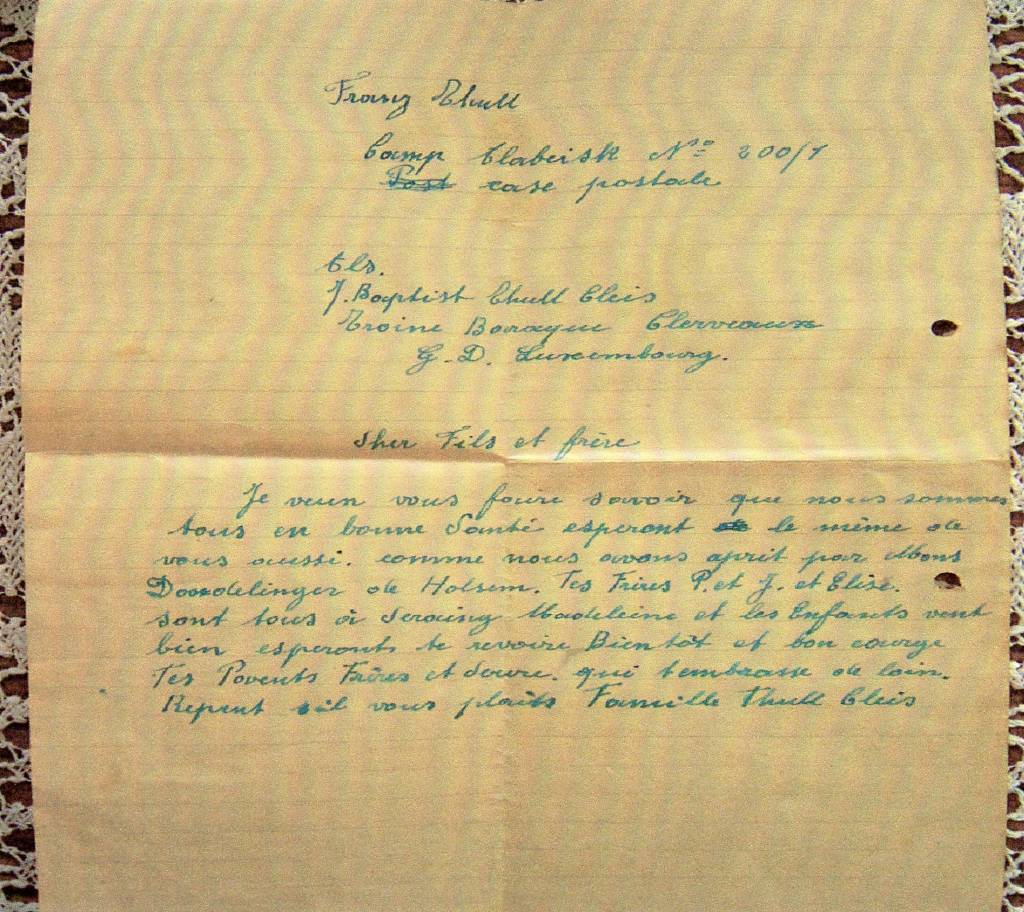 Franz Thull
Camp Tlabeisk No 200/7
Post case postale
Els.
J. Baptist Thull Cleis
Troine Baraque Clerveaux
G. D. Luxembourg.
Sher Fils et frère
Je veux vous faire savoir que nous sommes
tous en bonne Santé esperent le même de
vous aussi. comme nous avons aprit par Mons
Dondelinger de Holsem. Tes Frères P. et J. et Elise.
sont tous à Seraing Madeleine et les Enfants vent
bien esperents te revoire Bientôt et bon courge
Tes Parents Frères et Soure. qui t'embrasse de loin.
Repent sil vous plaits Famille Thull Cleis